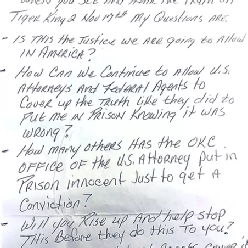 Tiger King 2 Nov 17th My Questions are.
- Is This the Justice we are going to Allow
in America?
- How Can We Continue to Allow U.S.
Attorneys And Federal Agents to
Cover up the Truth like they did to
Put me in Prison Knowing it was
Wrong?
- How many others Has the OKC
Office of the U.S. Attorney put in
Prison innocent Just to get a
Conviction?
- Will you Rise up And help stop
This Before they do this To you?